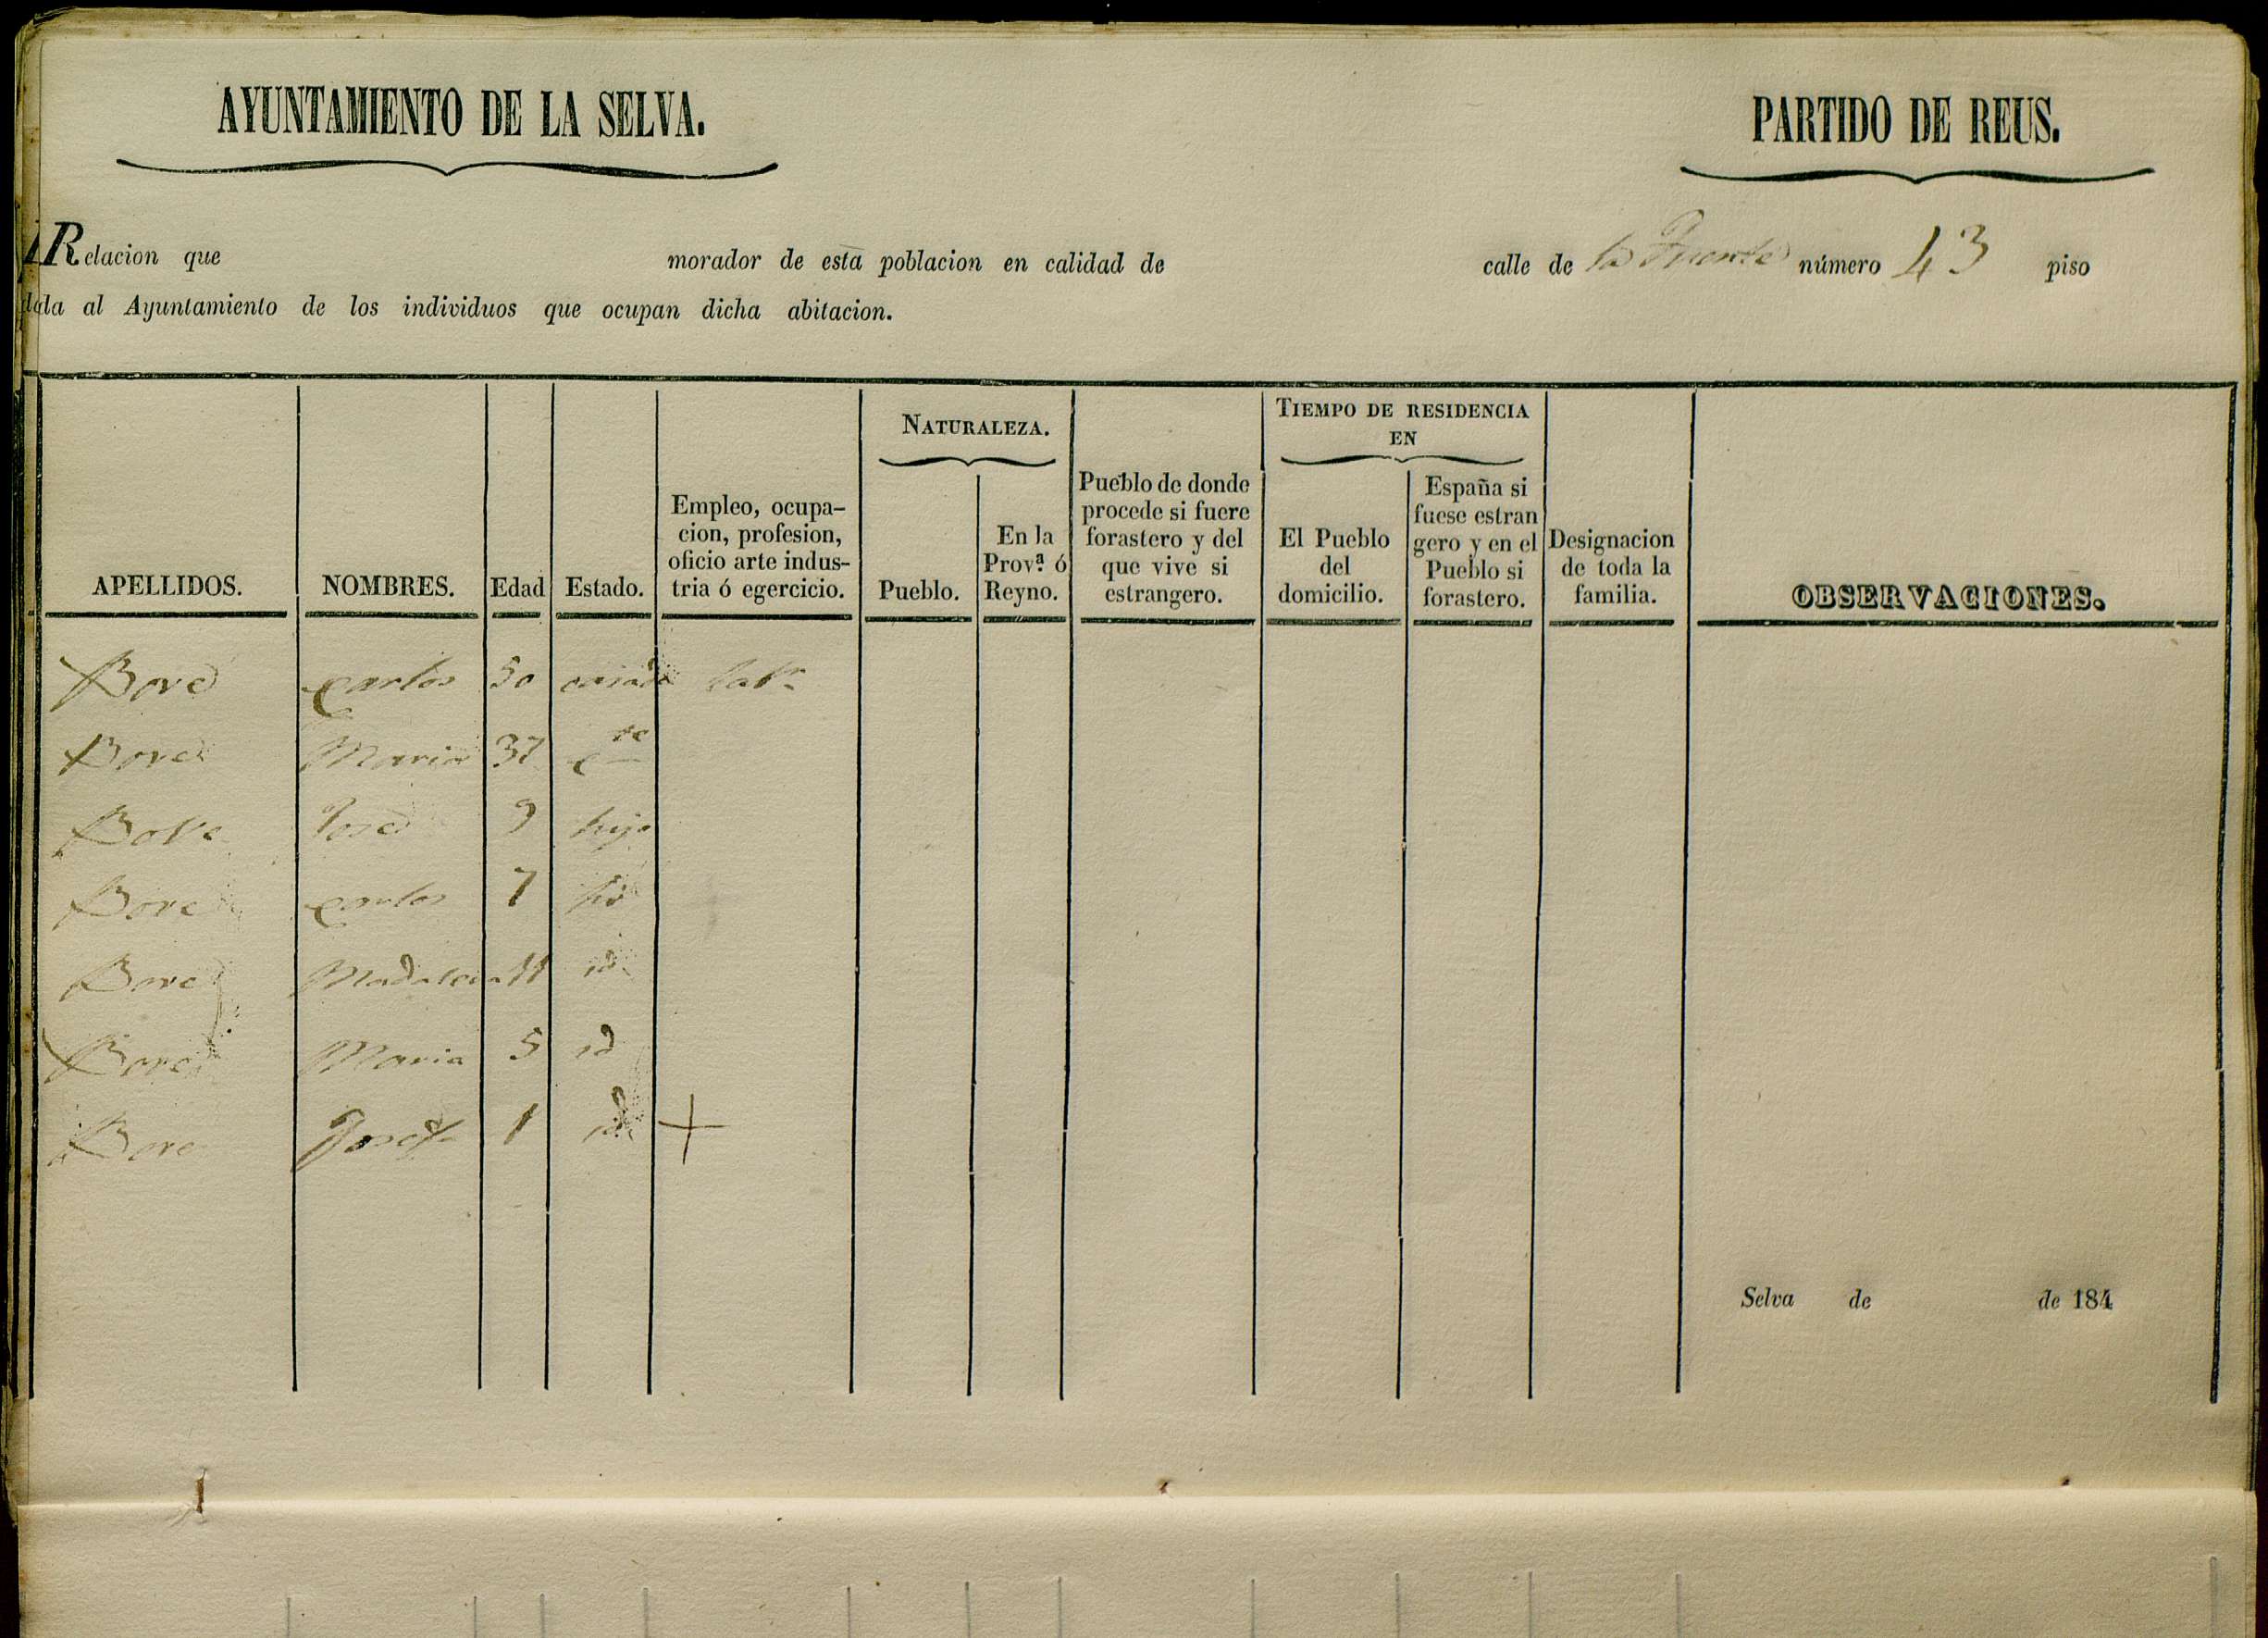 AYUNTAMIENTO DE LA SELVA.
PARTIDO DE REUS.
Relacion que morador de esta poblacion en calidad de calle de la Fuente número 43 piso
da al Ayuntamiento de los individuos que ocupan dicha abitacion.
NATURALEZA.
TIEMPO DE RESIDENCIA
EN
APELLIDOS.
NOMBRES.
Edad
Estado.
Empleo, ocupa-
cion, profesion,
oficio arte indus-
tria ó egercicio.
Pueblo.
En la
Provª ó
Reyno.
Pueblo de donde
procede si fuere
forastero y del
que vive si
estrangero.
El Pueblo
del
domicilio.
España si
fuese estran
gero y en el
Pueblo si
forastero.
Designacion
de toda la
familia.
OBSERVACIONES.
Bove Carlos 50 casado labr
Bove Maria 37
Bove Jose 9 hijo
Bove Carlos 7 id
Bove Madalena 11 id
Bove Maria 5 id
Bove Josefa 1 id +
Selva de de 184